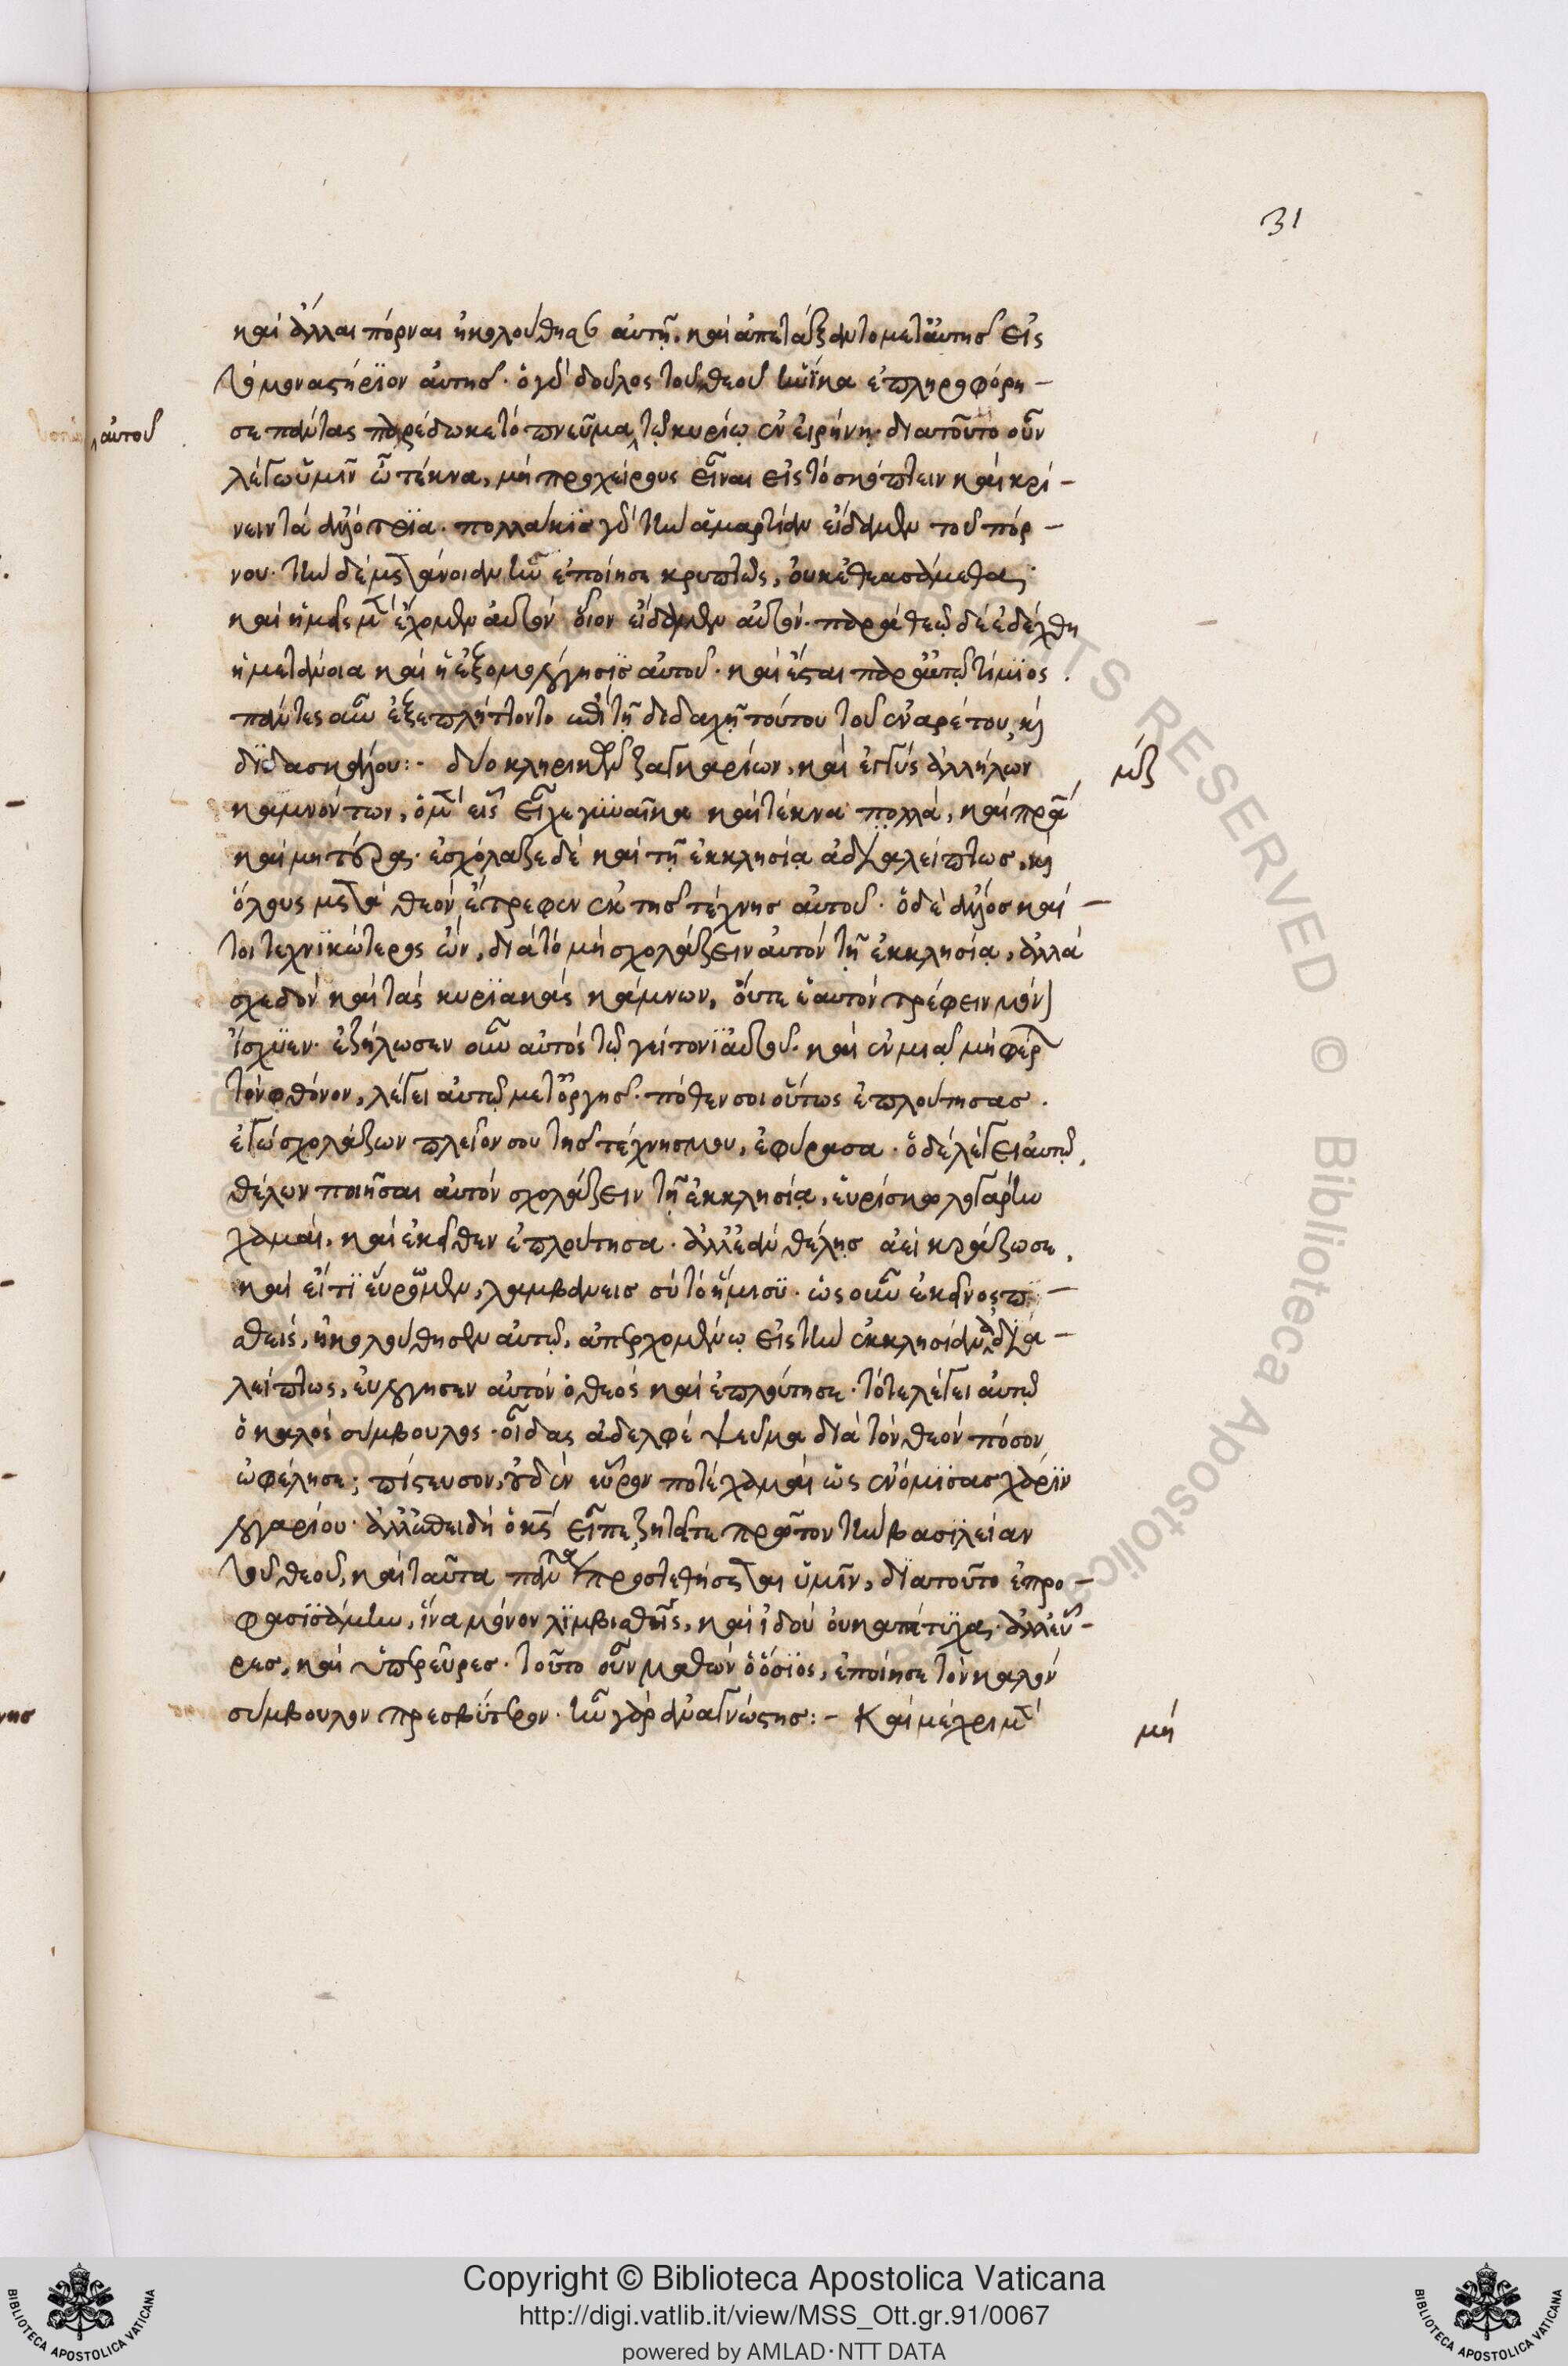 31
καὶ ἄλλαι πόρναι ἠκολούθησαν αὐτῇ. καὶ ἀπετάξαντο μετ' αὐτῆς εἰς
τὸ μοναστήριον αὐτῆς. ὁ γὰρ δοῦλος τοῦ θεοῦ ἡνίκα ἐπληροφόρη-
σε πάντας παρέδωκε τὸ πνεῦμα αὐτοῦ τῷ κυρίῳ ἐν εἰρήνῃ. διὰ τοῦτο οὖν
λέγω ὑμῖν ὦ τέκνα, μὴ προχείρους εἶναι εἰς τὸ σκώπτειν καὶ κρί-
νειν τὰ ἀλλότρια. πολλάκις γὰρ τὴν ἁμαρτίαν εἴδαμεν τοῦ πόρ-
νου. τὴν δὲ μετάνοιαν ἣν ἐποίησε κρυπτῶς, οὐκ ἐθεασάμεθα,
καὶ ἡμεῖς μὲν ἔχομεν αὐτὸν οἷον εἴδαμεν αὐτόν. παρὰ θεῷ δὲ ἐδέχθη
ἡ μετάνοια καὶ ἡ ἐξομολόγησις αὐτοῦ. καὶ ἔσται παρ' αὐτῷ τίμιος.
πάντες οὖν ἐξεπλήττοντο ἐπὶ τῇ διδαχῇ τούτου τοῦ ἐναρέτου, καὶ
διδασκάλου:- δύο κληρικῶν ζαγκαρίων, καὶ ἐγγὺς ἀλλήλων
μζ
καμνόντων, ὁ μὲν εἷς εἶχε γυναῖκα καὶ τέκνα πολλά, καὶ πατέρα
καὶ μητέρα. ἐσχόλαζε δὲ καὶ τῇ ἐκκλησίᾳ ἀδιαλείπτως, καὶ
ὅλους μετὰ θεὸν ἔτρεφεν ἐκ τῆς τέχνης αὐτοῦ. ὁ δὲ ἄλλος καί-
τοι τεχνικώτερος ὤν, διὰ τὸ μὴ σχολάζειν αὐτὸν τῇ ἐκκλησίᾳ, ἀλλὰ
σχεδὸν καὶ τὰς κυριακὰς κάμνων, οὔτε ἑαυτὸν τρέφειν μόνον
ἴσχυεν. ἐζήλωσεν οὖν αὐτὸς τῷ γείτονι αὐτοῦ. καὶ ἐν μιᾷ μὴ φέρων
τὸν φθόνον, λέγει αὐτῷ μετ' ὀργῆς. πόθεν σοι οὕτως ἐπλούτησας.
ἐγὼ σχολάζων πλεῖον σου τῆς τέχνης μου, ἐφύρασα. ὁ δὲ λέγει αὐτῷ,
θέλων ποιῆσαι αὐτὸν σχολάζειν τῇ ἐκκλησίᾳ, εὑρίσκω λογάριν
χαμαί, καὶ ἐκεῖθεν ἐπλούτησα. ἀλλ' ἐὰν θέλῃς ἀεὶ κράζω σε,
καὶ εἴ τι εὕρωμεν, λαμβάνεις σὺ τὸ ἥμισυ. ὡς οὖν ἐκεῖνος πι-
σθείς, ἠκολούθησεν αὐτῷ, ἀπερχομένῳ εἰς τὴν ἐκκλησίαν ἀδια-
λείπτως, εὐλόγησεν αὐτὸν ὁ θεὸς καὶ ἐπλούτησε. τότε λέγει αὐτῷ
ὁ καλὸς σύμβουλος. οἶδας ἀδελφὲ ψεῦμα διὰ τὸν θεὸν πόσον
ὠφέλησε; πίστευσον, οὐδὲν εὗρον ποτὲ χαμαὶ ὡς ἐνόμισας χάριν
λογαρίου. ἀλλ' ἐπειδὴ ὁ κύριος εἶπε, ζητεῖτε πρῶτον τὴν βασιλείαν
τοῦ θεοῦ, καὶ ταῦτα πάντα προστεθήσεται ὑμῖν, διὰ τοῦτο ἐπρο-
φασισάμην, ἵνα μόνον λιμβισθῇς, καὶ ἰδοὺ οὐκ ἀπέτυχας. ἀλλ' εὗ-
ρες, καὶ ὑπερεῦρες. τοῦτο οὖν μαθὼν ὁ ὅσιος, ἐποίησε τὸν καλὸν
σύμβουλον πρεσβύτερον. ἦν γὰρ ἀναγνώστης:- Καὶ μέχρι μὲν
μη
Copyright © Biblioteca Apostolica Vaticana
http://digi.vatlib.it/view/MSS_Ott.gr.91/0067
powered by AMLAD·NTT DATA